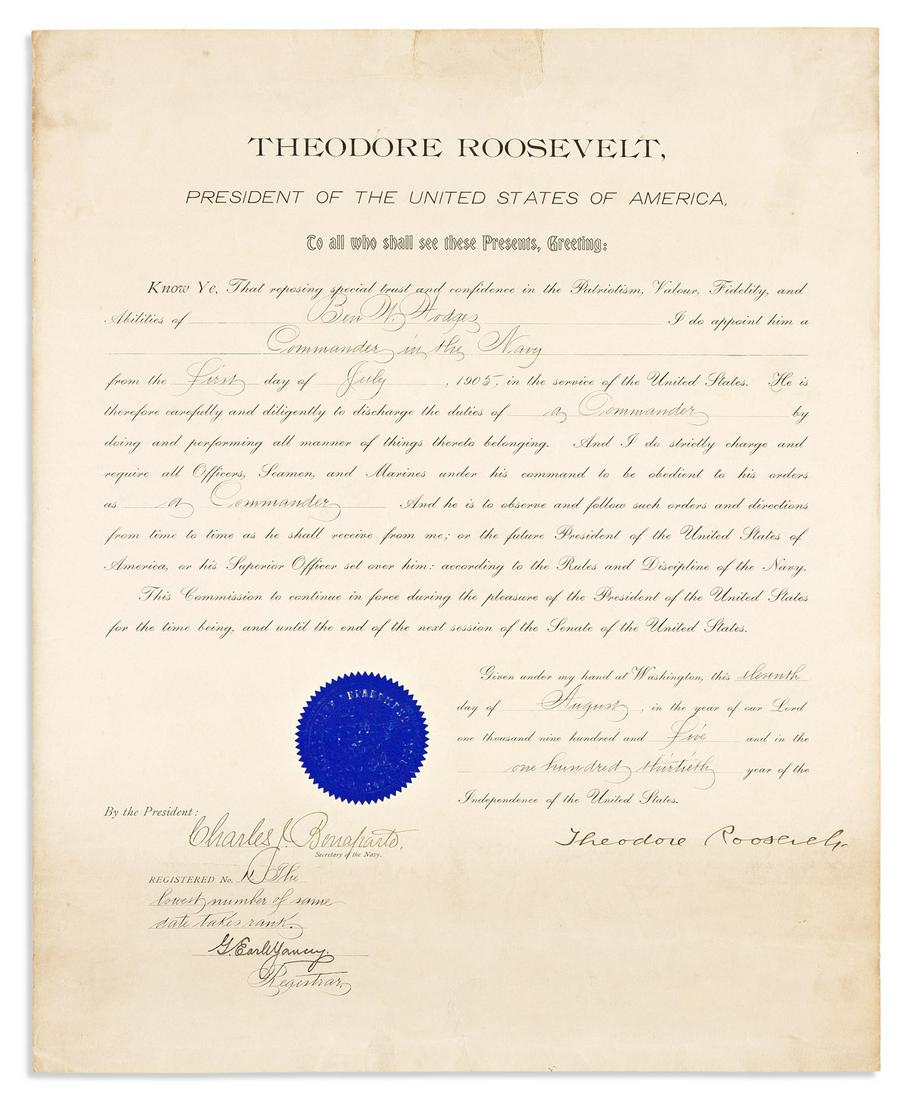 THEODORE ROOSEVELT,
PRESIDENT OF THE UNITED STATES OF AMERICA,
To all who shall see these Presents, Greeting:
Know Ye, That reposing special trust and confidence in the Patriotism, Valour, Fidelity, and
Abilities of Ben W. Hodges I do appoint him a
Commander in the Navy
from the first day of July, 1905, in the service of the United States. He is
therefore carefully and diligently to discharge the duties of a Commander by
doing and performing all manner of things thereto belonging. And I do strictly charge and
require all Officers, Seamen, and Marines under his command to be obedient to his orders
as a Commander And he is to observe and follow such orders and directions
from time to time as he shall receive from me; or the future President of the United States of
America, or his Superior Officer set over him: according to the Rules and Discipline of the Navy.
This Commission to continue in force during the pleasure of the President of the United States
for the time being, and until the end of the next session of the Senate of the United States.
Given under my hand at Washington, this eleventh
day of August, in the year of our Lord
one thousand nine hundred and five and in the
one hundred thirtieth year of the
Independence of the United States.
By the President:
Charles J. Bonaparte,
Secretary of the Navy.
Theodore Roosevelt
REGISTERED No. The
lowest number of same
date takes rank.
G. Earle Yancey.
Registrar